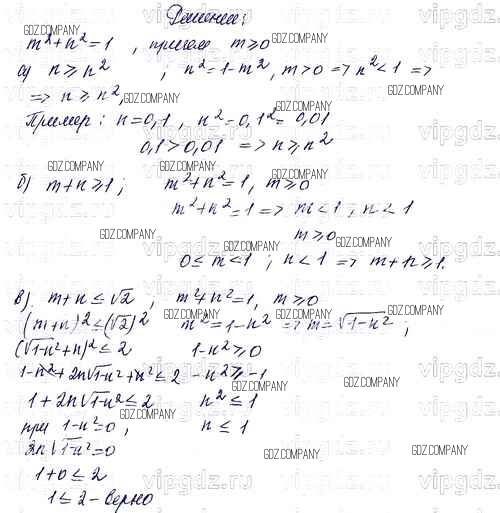 Решение:
m²+n²=1, причем m≥0
а) n≥n²; n²=1-m², m>0 => n²<1 =>
=> n≥n²,
Пример: n=0,1, n²=0,1²=0,01
0,1>0,01 => n≥n²
б) m+n≥1; m²+n²=1, m≥0
m²+n²=1 => m<1; n<1
m≥0
0≤m<1; n<1 => m+n≥1.
в). m+n≤√2, m²+n²=1, m≥0
(m+n)²≤(√2)² m²=1-n² => m=√1-n²;
(√1-n²+n)²≤2 1-n²≥0
1-n²+2n√1-n²+n²≤2 -n²≥-1
1+2n√1-n²≤2 n²≤1
при 1-n²=0, n≤1
2n√1-n²=0
1+0≤2
1≤2-верно
GDZ.COMPANY
vipgdz.com